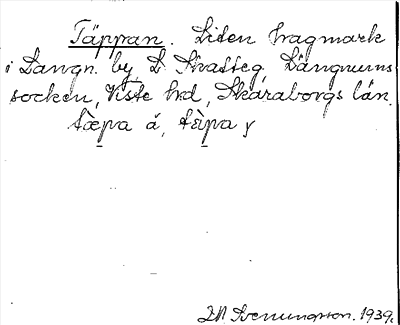 Täppan. Liten hagmark
i Långn. by, L. Skatteg, Längnums
socken, Viste hd, Skaraborgs län.
tæpa å, tæpa y
Svenungsson. 1939.